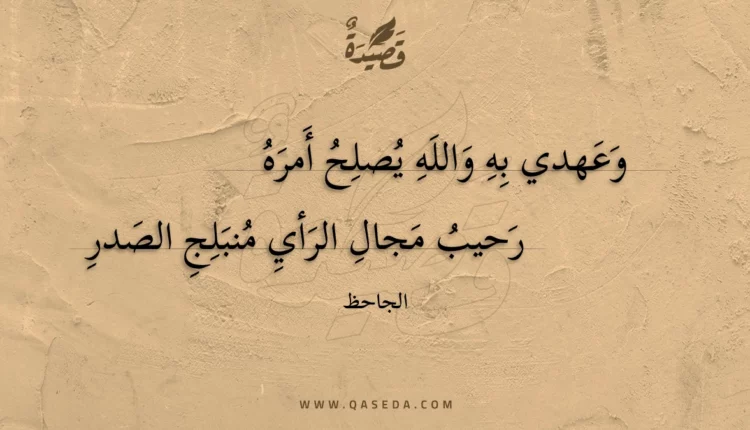 قَصِيدَةٌ
وَعَهدي بِهِ وَاللَهِ يُصلِحُ أَمرَهُ
رَحيبُ مَجالِ الرَأيِ مُنبَلِجِ الصَدرِ
الجاحظ
WWW.QASEDA.COM